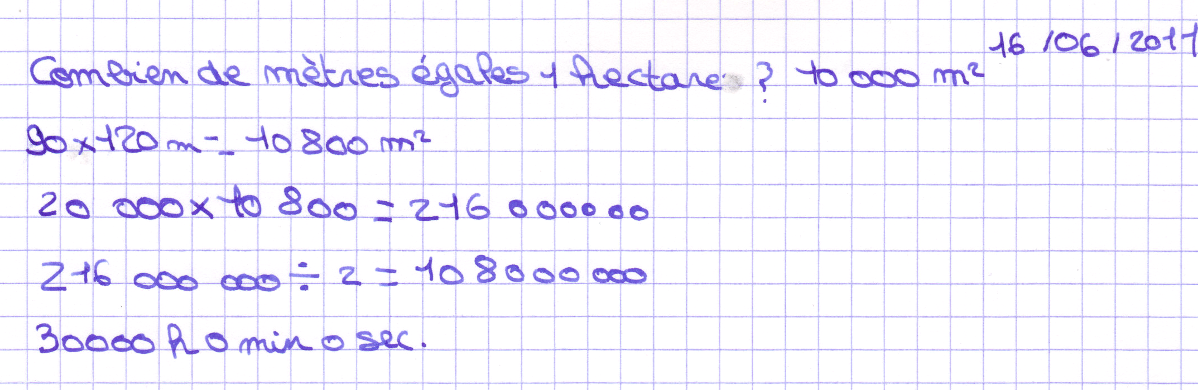 16/06/2011
Combien de mètres égales 1 hectare ? 10 000 m²
90x120 m = 10 800 m²
20 000 x 10 800 = 216 000000
216 000 000 ÷ 2 = 108000 000
30000 h 0 min 0 sec.